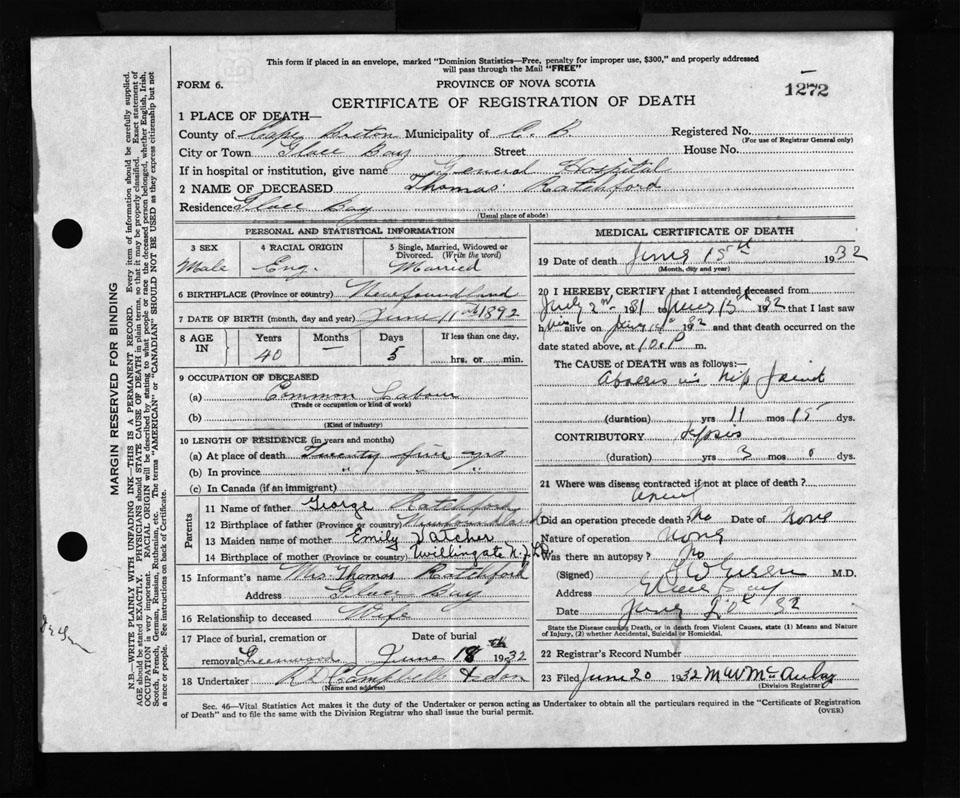 This form if placed in an envelope, marked "Dominion Statistics—Free, penalty for improper use, $300," and properly addressed
will pass through the Mail "FREE"
FORM 6.
PROVINCE OF NOVA SCOTIA
1272
CERTIFICATE OF REGISTRATION OF DEATH
1 PLACE OF DEATH—
County of Cape Breton Municipality of C. B. Registered No.
(For use of Registrar General only)
City or Town Glace Bay Street House No.
If in hospital or institution, give name General Hospital
2 NAME OF DECEASED Thomas Ratchford
Residence Glace Bay
(Usual place of abode)
PERSONAL AND STATISTICAL INFORMATION
3 SEX 4 RACIAL ORIGIN 5 Single, Married, Widowed or Divorced. (Write the word)
Male Eng. Married
6 BIRTHPLACE (Province or country) Newfoundland
7 DATE OF BIRTH (month, day and year) June 11th 1892
8 AGE IN Years Months Days If less than one day,
40 — 5 hrs. or min.
9 OCCUPATION OF DECEASED
(a) Common Labour
(Trade or occupation or kind of work)
(b)
(Kind of industry)
10 LENGTH OF RESIDENCE (in years and months)
(a) At place of death Twenty five yrs
(b) In province " " "
(c) In Canada (if an immigrant)
Parents
11 Name of father George Ratchford
12 Birthplace of father (Province or country) Newfoundland
13 Maiden name of mother Emily Vatcher
14 Birthplace of mother (Province or country) Twillingate N.F.LD.
15 Informant's name Mrs Thomas Ratchford
Address Glace Bay
16 Relationship to deceased Wife
17 Place of burial, cremation or Date of burial
removal Greenwood June 18th 1932
18 Undertaker Campbell & Son
(Name and address)
MEDICAL CERTIFICATE OF DEATH
19 Date of death June 15th 1932
(Month, day and year)
20 I HEREBY CERTIFY that I attended deceased from
July 2nd 31 to June 15th 1932 that I last saw
him alive on June 1932 and that death occurred on the
date stated above, at 10 P m.
The CAUSE OF DEATH was as follows:—
Abscess in hip joint
(duration) yrs 11 mos 15 dys.
CONTRIBUTORY Sepsis
(duration) yrs 3 mos 0 dys.
21 Where was disease contracted if not at place of death?
Did an operation precede death? No Date of None
Nature of operation None
Was there an autopsy? No
(Signed) M.D.
Address Glace Bay
Date June 20th 32
State the Disease causing Death, or in death from Violent Causes, state (1) Means and Nature
of Injury, (2) whether Accidental, Suicidal or Homicidal.
22 Registrar's Record Number
23 Filed June 20 1932 M W McAulay
(Division Registrar)
Sec. 46—Vital Statistics Act makes it the duty of the Undertaker or person acting as Undertaker to obtain all the particulars required in the "Certificate of Registration
of Death" and to file the same with the Division Registrar who shall issue the burial permit.
(OVER)
MARGIN RESERVED FOR BINDING
N.B.—WRITE PLAINLY WITH UNFADING INK—THIS IS A PERMANENT RECORD. Every item of information should be carefully supplied.
AGE should be stated EXACTLY. PHYSICIANS should STATE CAUSE OF DEATH in plain terms, so that it may be properly classified. Exact statement of
OCCUPATION is very important. RACIAL ORIGIN will be described by stating to what people or race the deceased person belonged, whether English, Irish,
Scotch, French, German, Russian, Ruthenian, etc. The terms "AMERICAN" or "CANADIAN" SHOULD NOT BE USED as they express citizenship but not
a race or people. See instructions on back of Certificate.